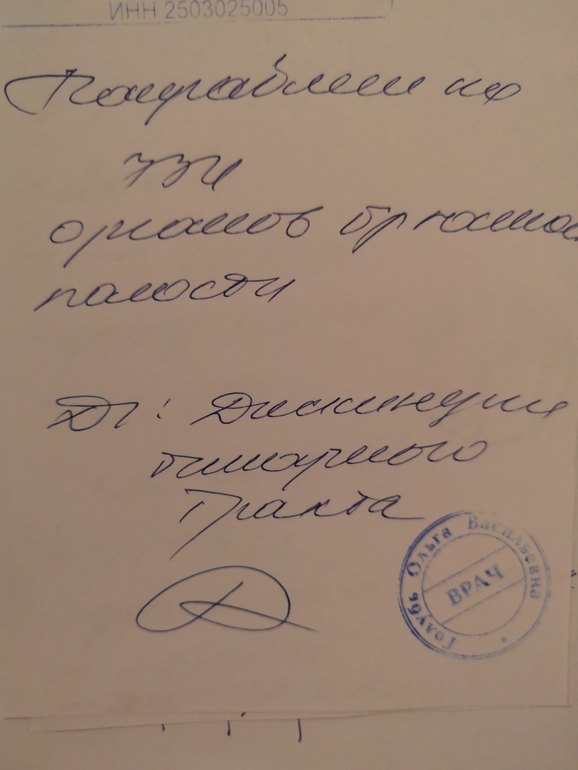 ИНН 2503025005
Направлен на
УЗИ
органов брюшной
полости
Ds: Дискинезия
билиарного
тракта
Голубь Ольга Васильевна
ВРАЧ